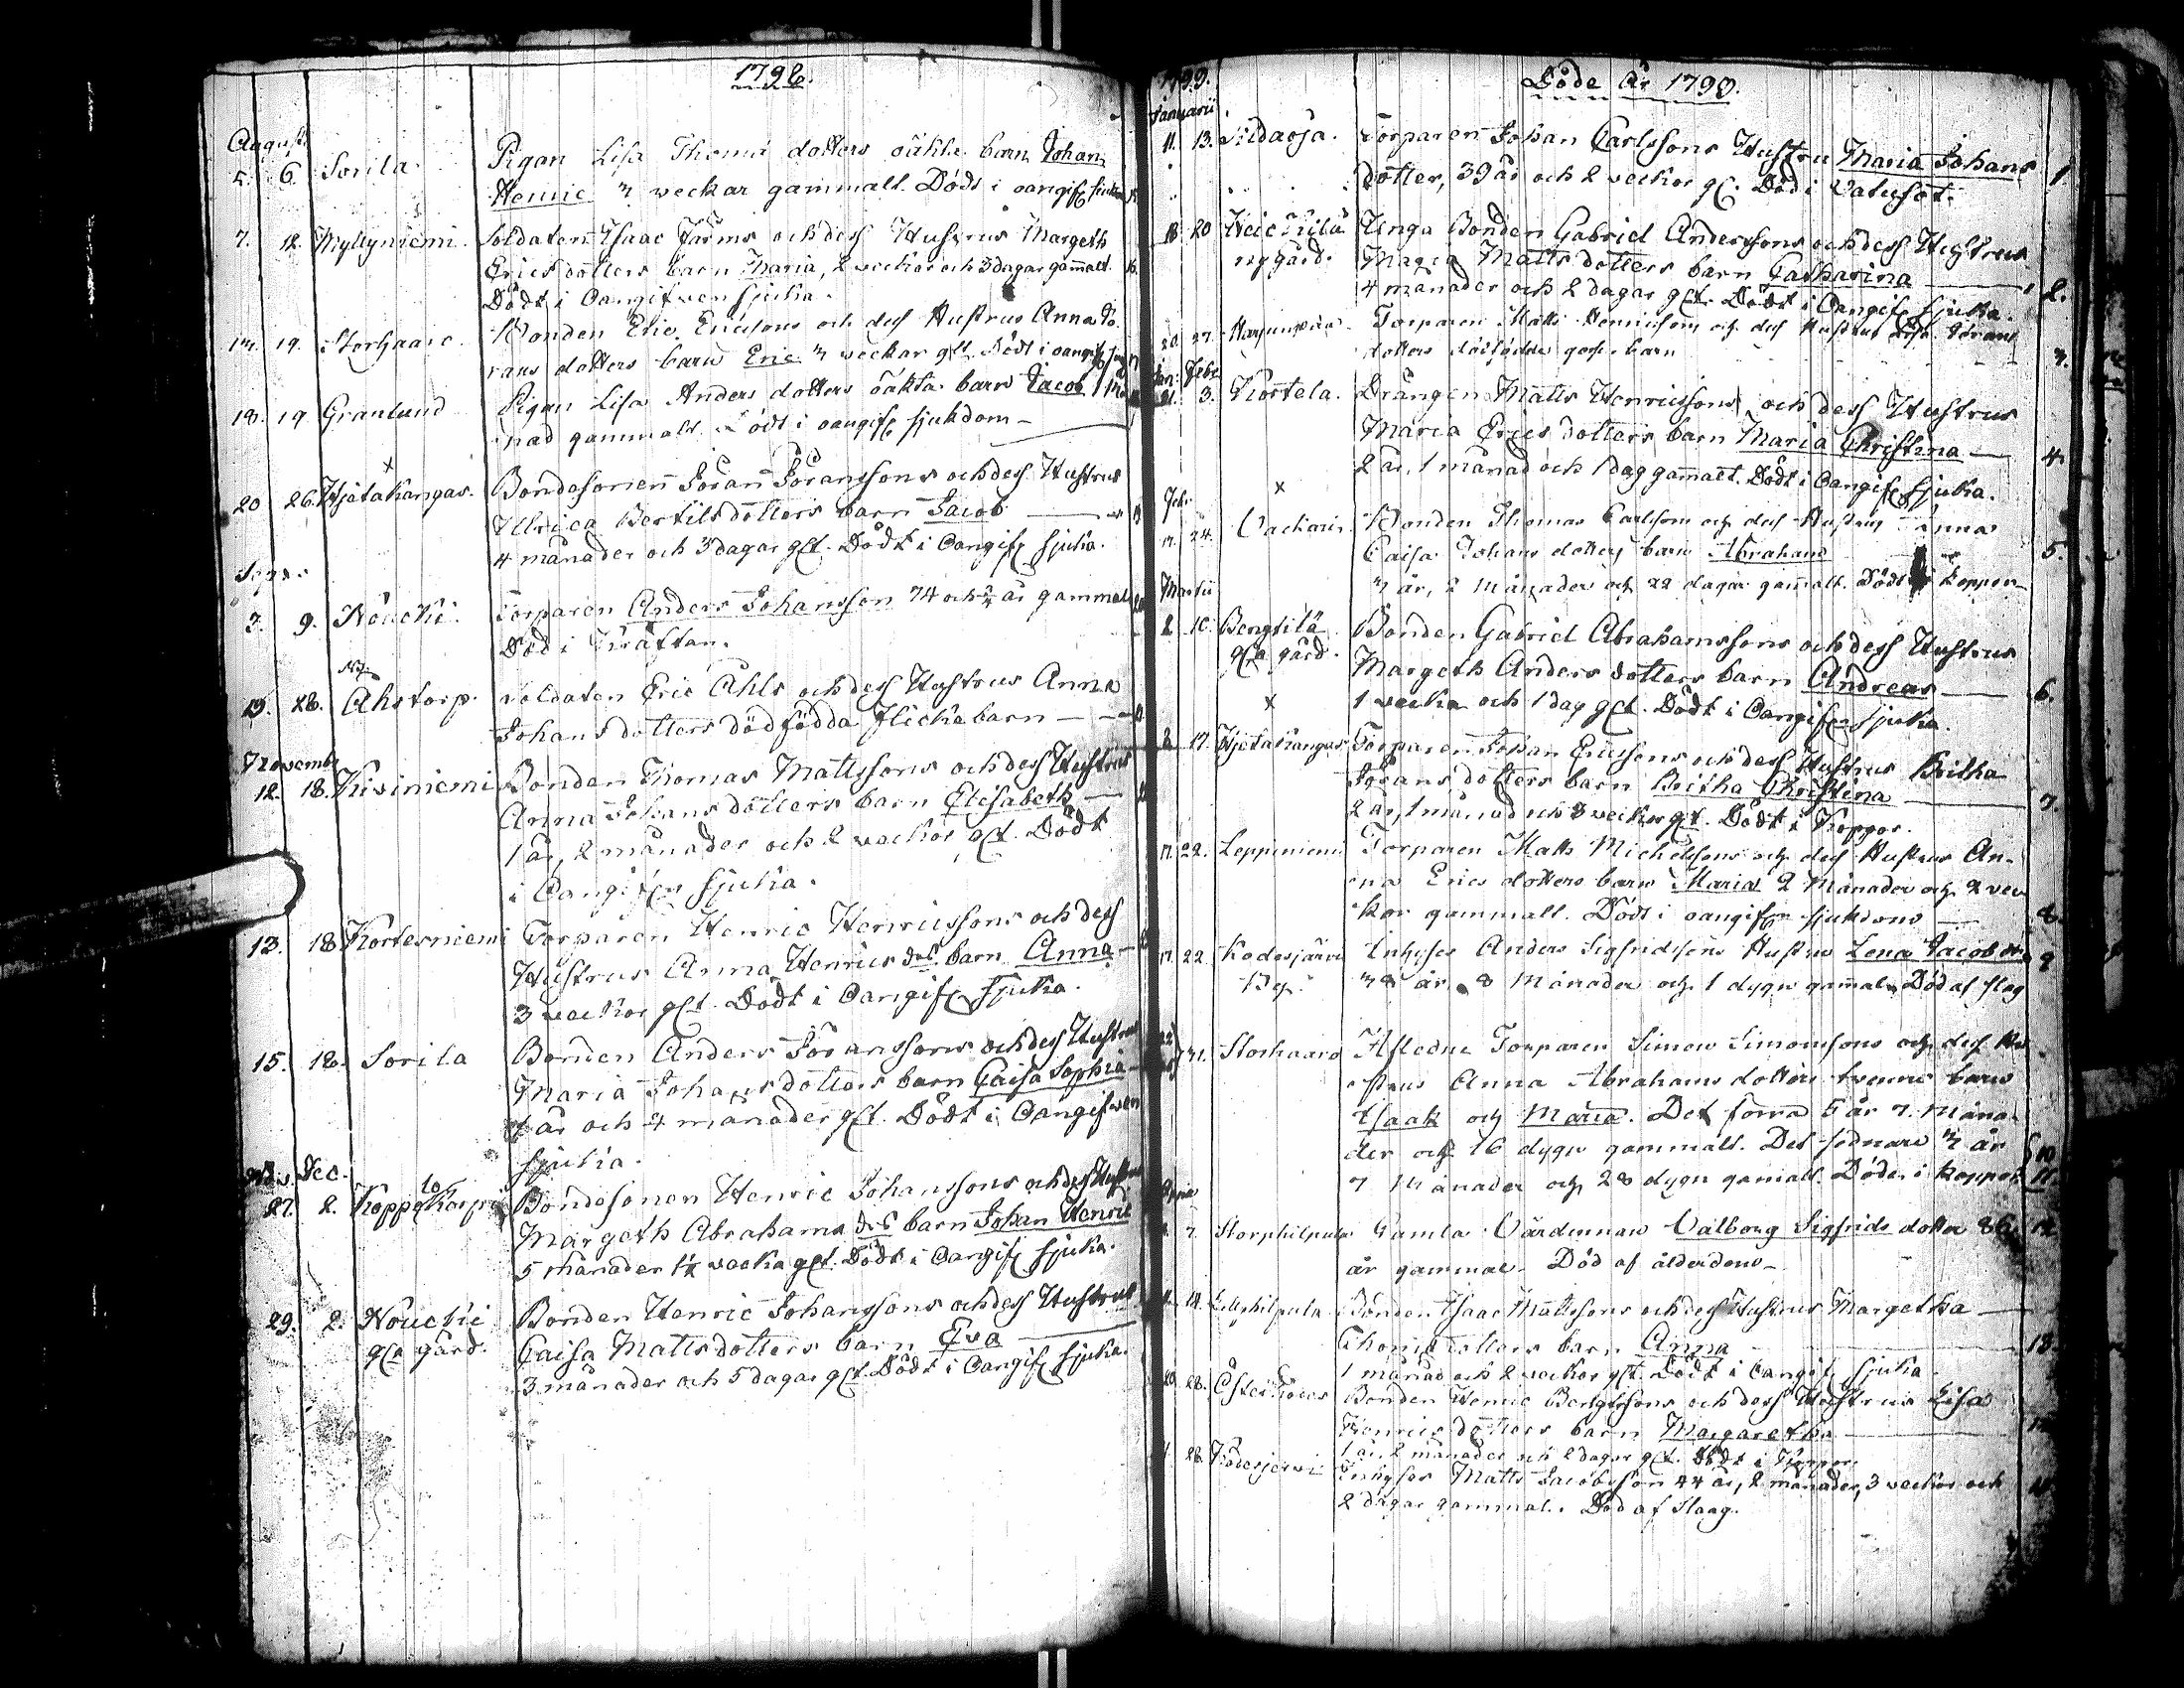 1798.
August
5. 6. Sorila. Pigan Lisa Thomæ dotters oäkta barn Johan
Henric 3 veckor gammalt. Dödt i oangifv sjukd
7. 12. Myllyniemi. Soldaten Isaac Järms och dess Hustrus Margeth
Ericsdotters barn Maria, 2 veckor och 3 dagar gamalt.
Dödt i Oangifven sjuka.
19. Storhaaro. Bonden Eric Ericsons och dess Hustrus Anna Jö-
rans dotters barn Eric 3 veckor glt Dödt i oangifv
18. 19 Granlund Pigan Lisa Anders dotters oäkta barn Jacob 1 Må-
nad gammalt. Dödt i oangifv sjukdom
20 26. Hjätakangas. Bondesonen Jöran Jöranssons och dess Hustrus
Ulrica Bertils dotters barn Jacob
4 månader och 3 dagar glt. Dödt i Oangifv sjuka.
3. 9. Noucki. Torparen Anders Johansson 74 och 3/4 år gammal
Död i Kräftan.
Ny
28. Åhstorp. Soldaten Eric Åhls och dess Hustrus Anna
Johans dotters dödfödda flickebarn
Novembr
12. 18. Kiviniemi Bonden Thomas Mattssons och dess Hustrus
Anna Johans dotters barn Elisabeth
1 år, 2 månader och 2 veckor glt. Dödt
i Oangifven sjuka.
13. 18. Kortesniemi Torparen Henric Henricssons och dess
Hustrus Anna Henrics dotr barn Anna
3 veckor glt. Dödt i Oangifv sjuka.
15. 18. Sorila Bonden Anders Jöranssons och dess Hustrus
Maria Johans dotters barn Caisa Sophia
år och 4 månader glt. Dödt i Oangifven
sjuka.
Dec.
27. 2. Koppelokarpi Bondesonen Henric Johanssons och dess Hustrus
Margeth Abrahams dotr barn Johan Henric
5 månader 1 1/2 vecka glt. Dödt i Oangifv sjuka.
29. 2. Noucki Bonden Henric Johanssons och dess Hustrus
gla gård. Caisa Matts dotters barn Eva
3 månader och 5 dagar glt. Dödt i Oangifv sjuka.
1799. Döde År 1799.
Januarii
11. 13. Torparen Johan Carlssons Hustru Maria Johans 1.
dotter, 39 år och 2 veckor gl. Död i Vatusot.
18 20 Heickilä Unga Bonden Gabriel Anderssons och dess Hustrus
nygård. Maria Matts dotters barn Catharina 2.
4 månader och 2 dagar glt. Dödt i Oangifv sjuka.
20. 27. Harjunpää Torparen Matts Henricsons och dess Hustrus Lisa Jörans
dotters dödfödde gosse barn 3.
Jan: Febr
31. 3. Kortela. Drängen Matts Henricssons och dess Hustrus
Maria Erics dotters barn Maria Christina 4.
2 år, 1 månad och 1 dag gamalt. Dödt i Oangifv sjuka.
Febr
24. Vackari Bonden Thomas Carlsons och dess Hustrus Anna
Caisa Johans dotters barn Abraham 5.
3 år, 2 Månader och 22 dagar gamalt. Dödt i koppor
Martii
2 10. Bengtilä Bonden Gabriel Abrahamssons och dess Hustrus
gla gård. Margeth Anders dotters barn Andreas 6.
1 vecka och 1 dag glt. Dödt i Oangifven sjuka.
17. Hjetakangas Torparen Johan Ericssons och dess Hustrus Britha
Jörans dotters barn Britha Christina 7
2 år, 1 månad och 3 veckor glt. Dödt i Koppor.
17. 22. Leppiniemi Torparen Matts Michelssons och dess Hustrus An-
na Erics dotters barn Maria 2 Månader och 2 vec-
kor gammalt. Dödt i oangifven sjukdom 8.
17. 22. Kodesjärvi Inhyses Anders Sigfridsons Hustru Lena Jacobs dr 9
By. 38 år, 8 Månader och 1 dygn gammal. Död af slag
31. Storhaaro Afledne Torparen Simon Simonssons och dess Hu-
strus Anna Abrahams dotters tvenne barn
Isaak och Maria. Det förra 5 år 7 Måna-
der och 16 dygn gammalt. Det sednare 3 år 10
7 Månader och 28 dygn gamalt. Döde i koppor 11
Aprill
7. Storphilpula Gamla Värdinnan Valborg Sigfrids dotter 86 12
år gammal. Död af ålderdom
14. Lillphilpula Bonden Isaac Mattssons och dess Hustrus Margetha
Thomæ dotters barn Anna 13.
1 månad och 2 veckor glt. Dödt i Oangifv sjuka
20 28. Österkoors Bonden Henric Bengtssons och dess Hustrus Lisa
Henrics dotters barn Margaretha
1 år, 2 månader och 2 dagar glt. Dödt i Koppor.
28. Kodesjervi Inhyses Matts Jacobsson 44 år, 2 månader, 3 veckor och
2 dagar gammal. Död af Slaag.